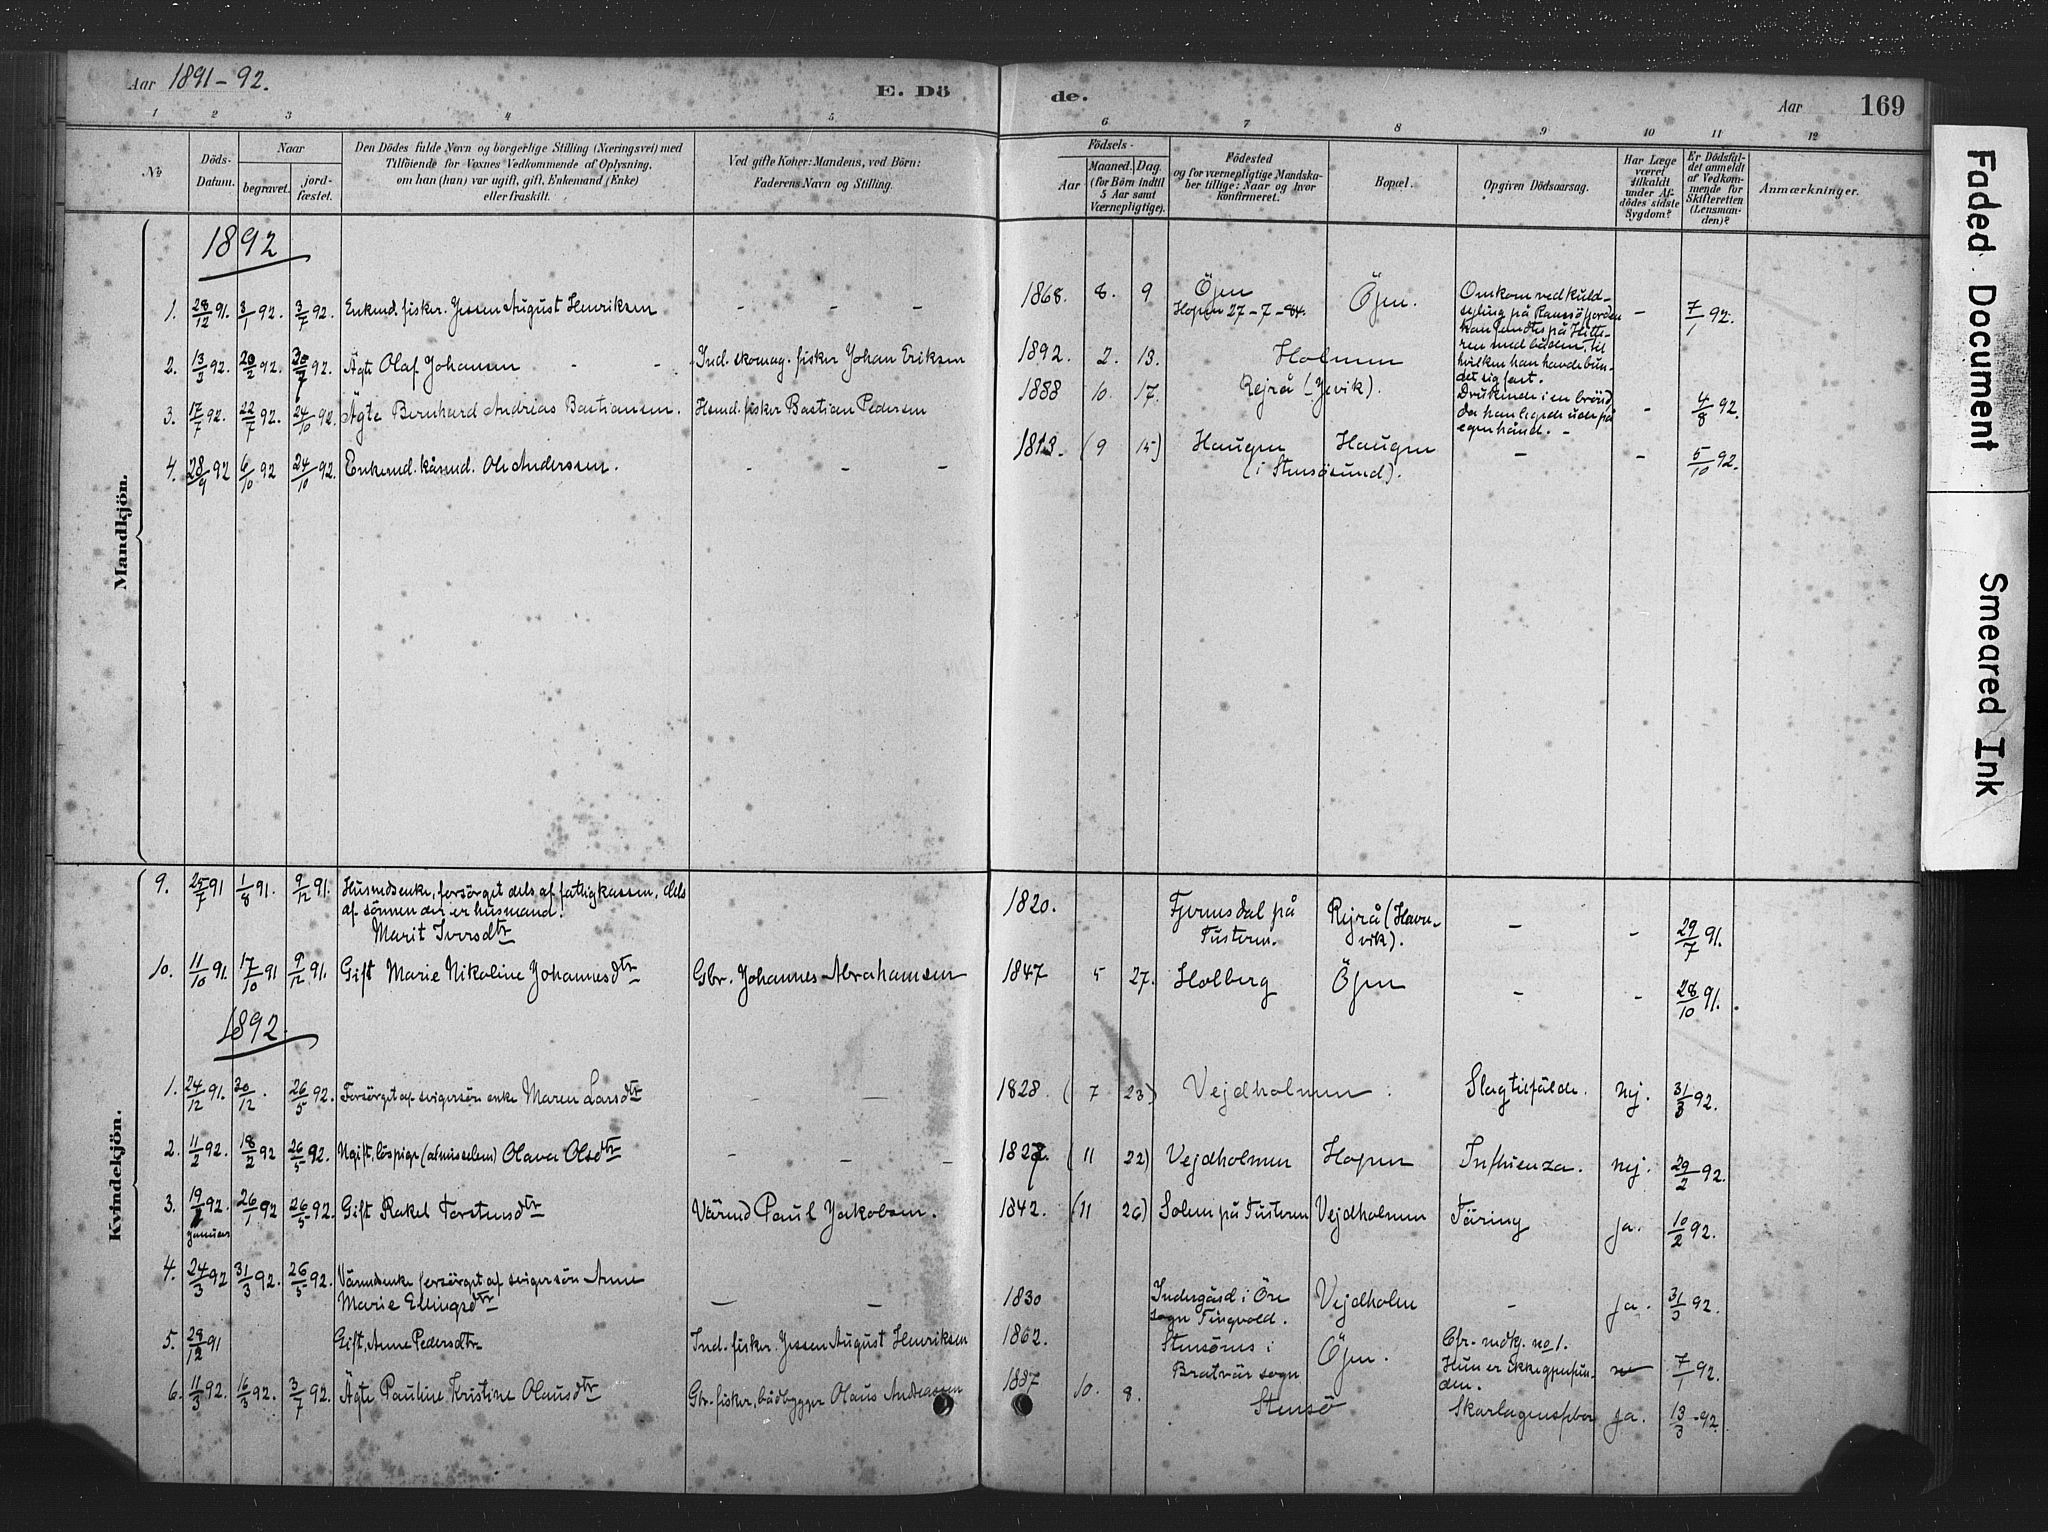 Aar 1891-92.
E. Dö
de.
Aar
169
1 2 3 4 5 6 7 8 9 10 11 12
No
Döds-
Datum.
Naar
begravet.
jord-
fæstet.
Den Dödes fulde Navn og borgerlige Stilling (Næringsvei) med
Tilföiende for Voxnes Vedkommende af Oplysning,
om han (hun) var ugift, gift, Enkemand (Enke)
eller fraskilt.
Ved gifte Koner: Mandens, ved Börn:
Faderens Navn og Stilling.
Födsels-
Aar
Maaned.
Dag.
(for Börn indtil
5 Aar samt
Værnepligtige).
Födested
og for værnepligtige Mandska-
ber tillige: Naar og hvor
konfirmeret.
Bopæl.
Opgiven Dödsaarsag.
Har Læge
været
tilkaldt
under Af-
dödes sidste
Sygdom?
Er Dödsfal-
det anmeldt
af Vedkom-
mende for
Skifteretten
(Lensman-
den)?
Anmærkninger.
Mandkjön.
1892
1. 28/12 91. 3/1 92. 3/7 92. Enkmd. fisker. Jessen August Henriksen - - - 1868. 8. 9 Öjen Öjen. - 7/1 92.
Hopen 27-7-84.
Omkom ved kuld-
sejling på Ramsöfjorden
han fundtes på Hitte-
ren med båden, til
hvilken han havde bun-
det sig fast.
2. 13/3 92. 20/2 92. 92. Ägte Olaf Johansen - - Ind. skomag. fisker Johan Eriksen 1892. 2. 13. Holmen
3. 17/7 92. 22/7 92. 24/10 92. Ägte Bernhard Andreas Bastiansen. Hsmd. fisker Bastian Pedersen 1888 10. 17. Rejrå (Jevik). - 4/8 92.
Druknede i en brönd
da han legede ude på
egen hånd. -
4. 28/9 92 6/10 92 24/10 92. Enkemd. kårmd. Ole Anderssen. - - - 1813. (9 15) Haugen Haugen - - 5/10 92.
(i Stensösund).
Kvindekjön.
9. 25/7 91 1/8 91. 9/12 91. Husmdsenke, forsörget dels af fattigkassen, dels
af sönnen der er husmand.
Marit Iversdtr
1820. Fjernsdal på
Tusteren.
Rejrå (Havn-
vik).
- - 29/7 91.
10. 11/10 91. 17/10 91 9/12 91. Gift Marie Nikoline Johannesdtr Gbr. Johannes Abrahamsen 1847 5 27. Holberg Öjen - - 28/10 91.
1892.
1. 24/12 91. 30/12. 26/5 92. Forsörget af svigersön enke Maren Larsdtr - - 1828. (7 23) Vejdholmen Slagtilfälde. nej. 31/3 92.
2. 11/2 92. 18/2 92 26/5 92. Ugift, löspige (almisselem) Olava Olsdtr - - - 1827. (11 22) Vejdholmen Hopen Influenza. nej. 29/2 92.
3. 19/1 92. 26/1 92 26/5 92. Gift Rakel Torstensdtr Värmd Paul Jakobsen. 1842. (11 26) Solem på Tusteren Vejdholmen Täring ja. 10/2 92.
januar
4. 24/3 92 31/3 92. 26/5 92. Värmdsenke forsörget af svigersön Anne
Marie Ellingsdtr - -
1830 Indergård i Öre
sogn Tingvold.
Vejdholm - ja. 31/3 92.
5. 28/12 91 Gift, Anne Pedersdtr Ind. fisker. Jessen August Henriksen 1862. Stensönes i
Bratvär sogn
Öjen. Cfr. mdkj. no 1.
Hun er ikke gjenfun-
den.
7/1 92.
6. 11/3 92. 16/3 92. 3/7 92. Ägte Pauline Kristine Olausdtr Gbr. fisker, bådbygger Olaus Andreassen 1887 10. 8. Stensö Skarlagensfeber ja. 13/3 92.
Faded Document
Smeared Ink